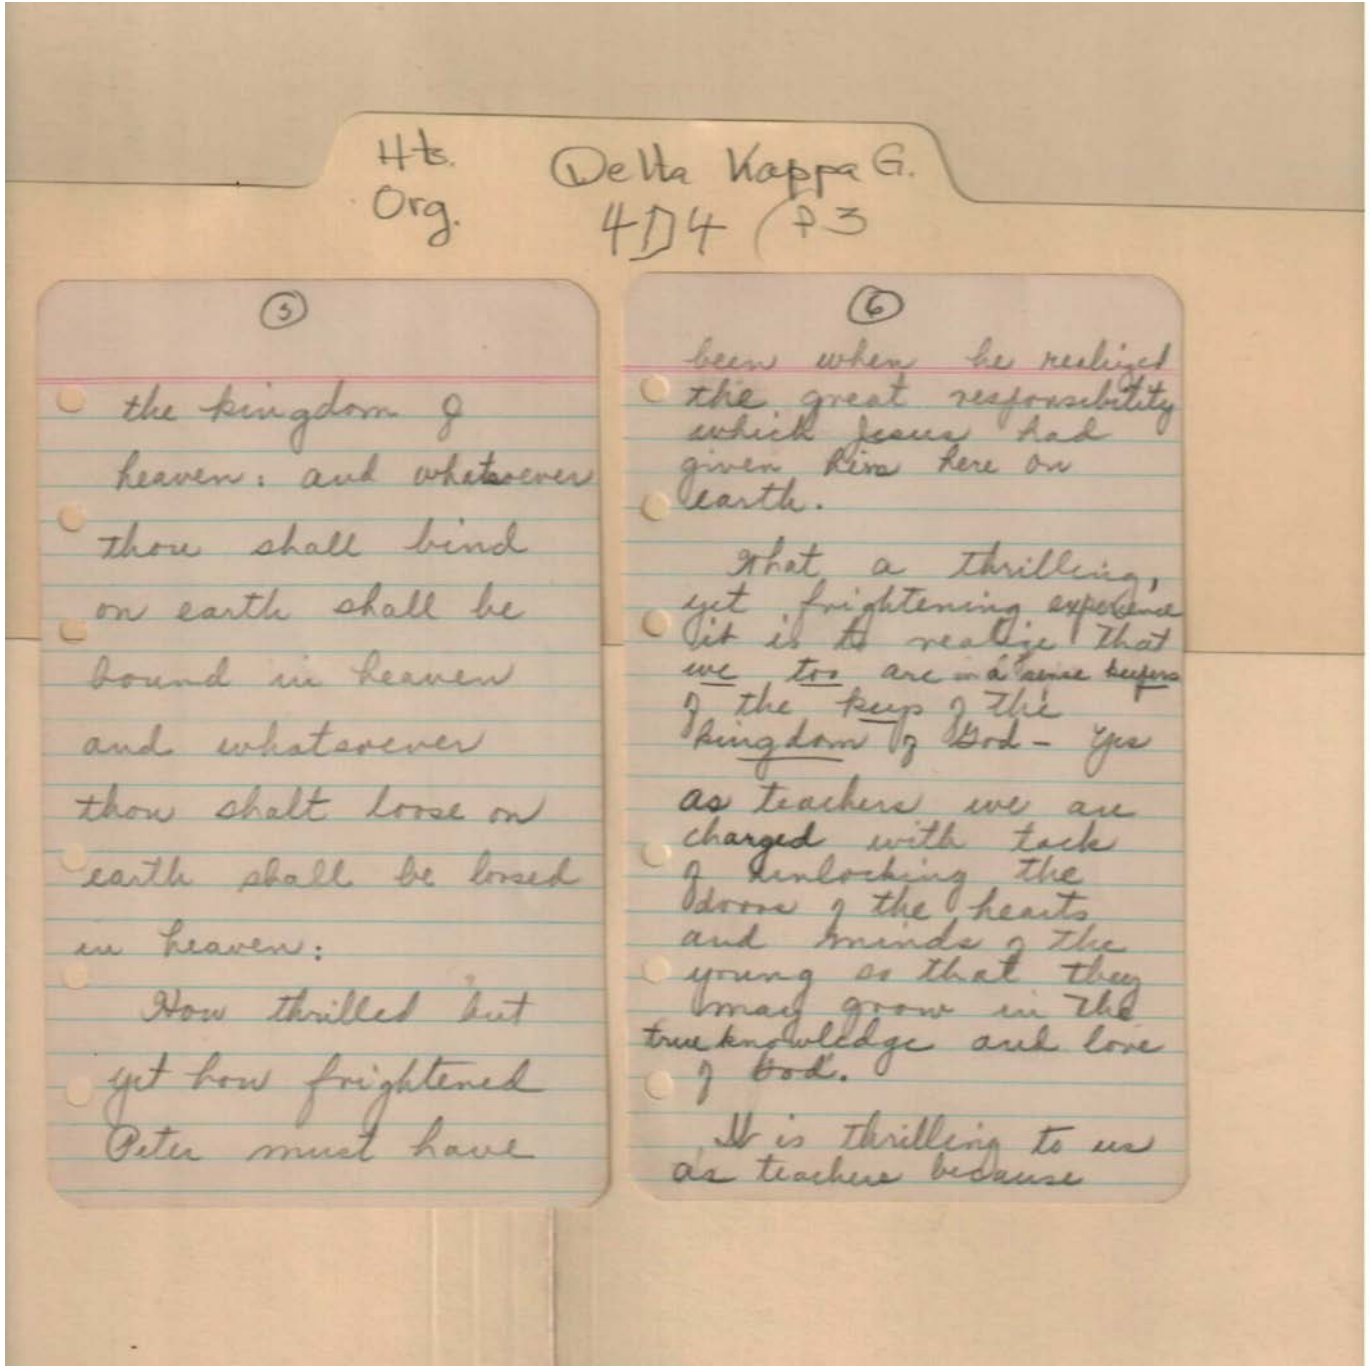 Hts. Delta Kappa G.
Org. 4D4 (P3
5
the kingdom of
heaven: and whatsoever
thou shall bind
on earth shall be
bound in heaven
and whatsoever
thou shalt loose on
earth shall be loosed
in heaven:
How thrilled but
yet how frightened
Peter must have
6
been when he realized
the great responsibility
which Jesus had
given him here on
earth.
What a thrilling,
yet frightening experience
it is to realize that
we too are in a sense keepers
of the keys of the
kingdom of God - Yes
as teachers we are
charged with task
of unlocking the
doors of the hearts
and minds of the
young so that they
may grow in the
true knowledge and love
of God.
It is thrilling to us
as teachers because